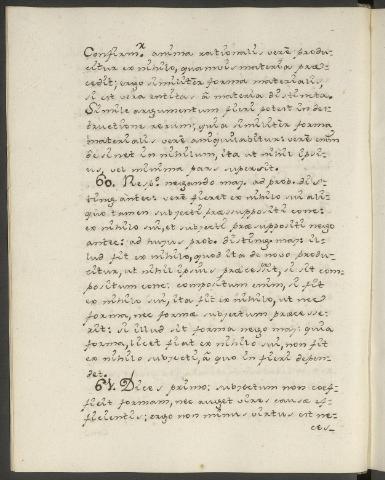 Confirmr. anima rationalis verè produ-
citur ex nihilo, quamvis materia præ-
cedit; ergo similitèr forma materialis
si est vera entitas à materia distincta.
Simile argumentum fieri potest in des-
tructione rerum; quia similitèr forma
materialis verè anniquilabitur: verè enim
desinet in nihilum, ita ut nihil ipsi-
us, vel minima pars supersit.
60. Resps. negando maj. ad prob. dis-
ting. antec: verè fieret ex nihilo sui ali-
quo tamen subjecti præsuppositi conc:
ex nihilo sui, et subjecti præsuppositi nego
antec: ad hujus prob. disting. maj: il-
lud fit ex nihilo, quod ita de novo produ-
citur, ut nihil ipsius præcesserit, si sit com-
positum conc: compositum enim, si fit
ex nihilo sui, ita fit ex nihilo, ut nec
forma, nec formæ subjectum præcesse-
rit: si illud sit forma nego maj: quia
forma, licet fiat ex nihilo sui, non fit
ex nihilo subjecti, à quo in fieri depen-
det.
61. Dices primo: subjectum non coef-
ficit formam, nec auget vires causæ ef-
ficientis; ergo non minus virtus est ne-
ces-